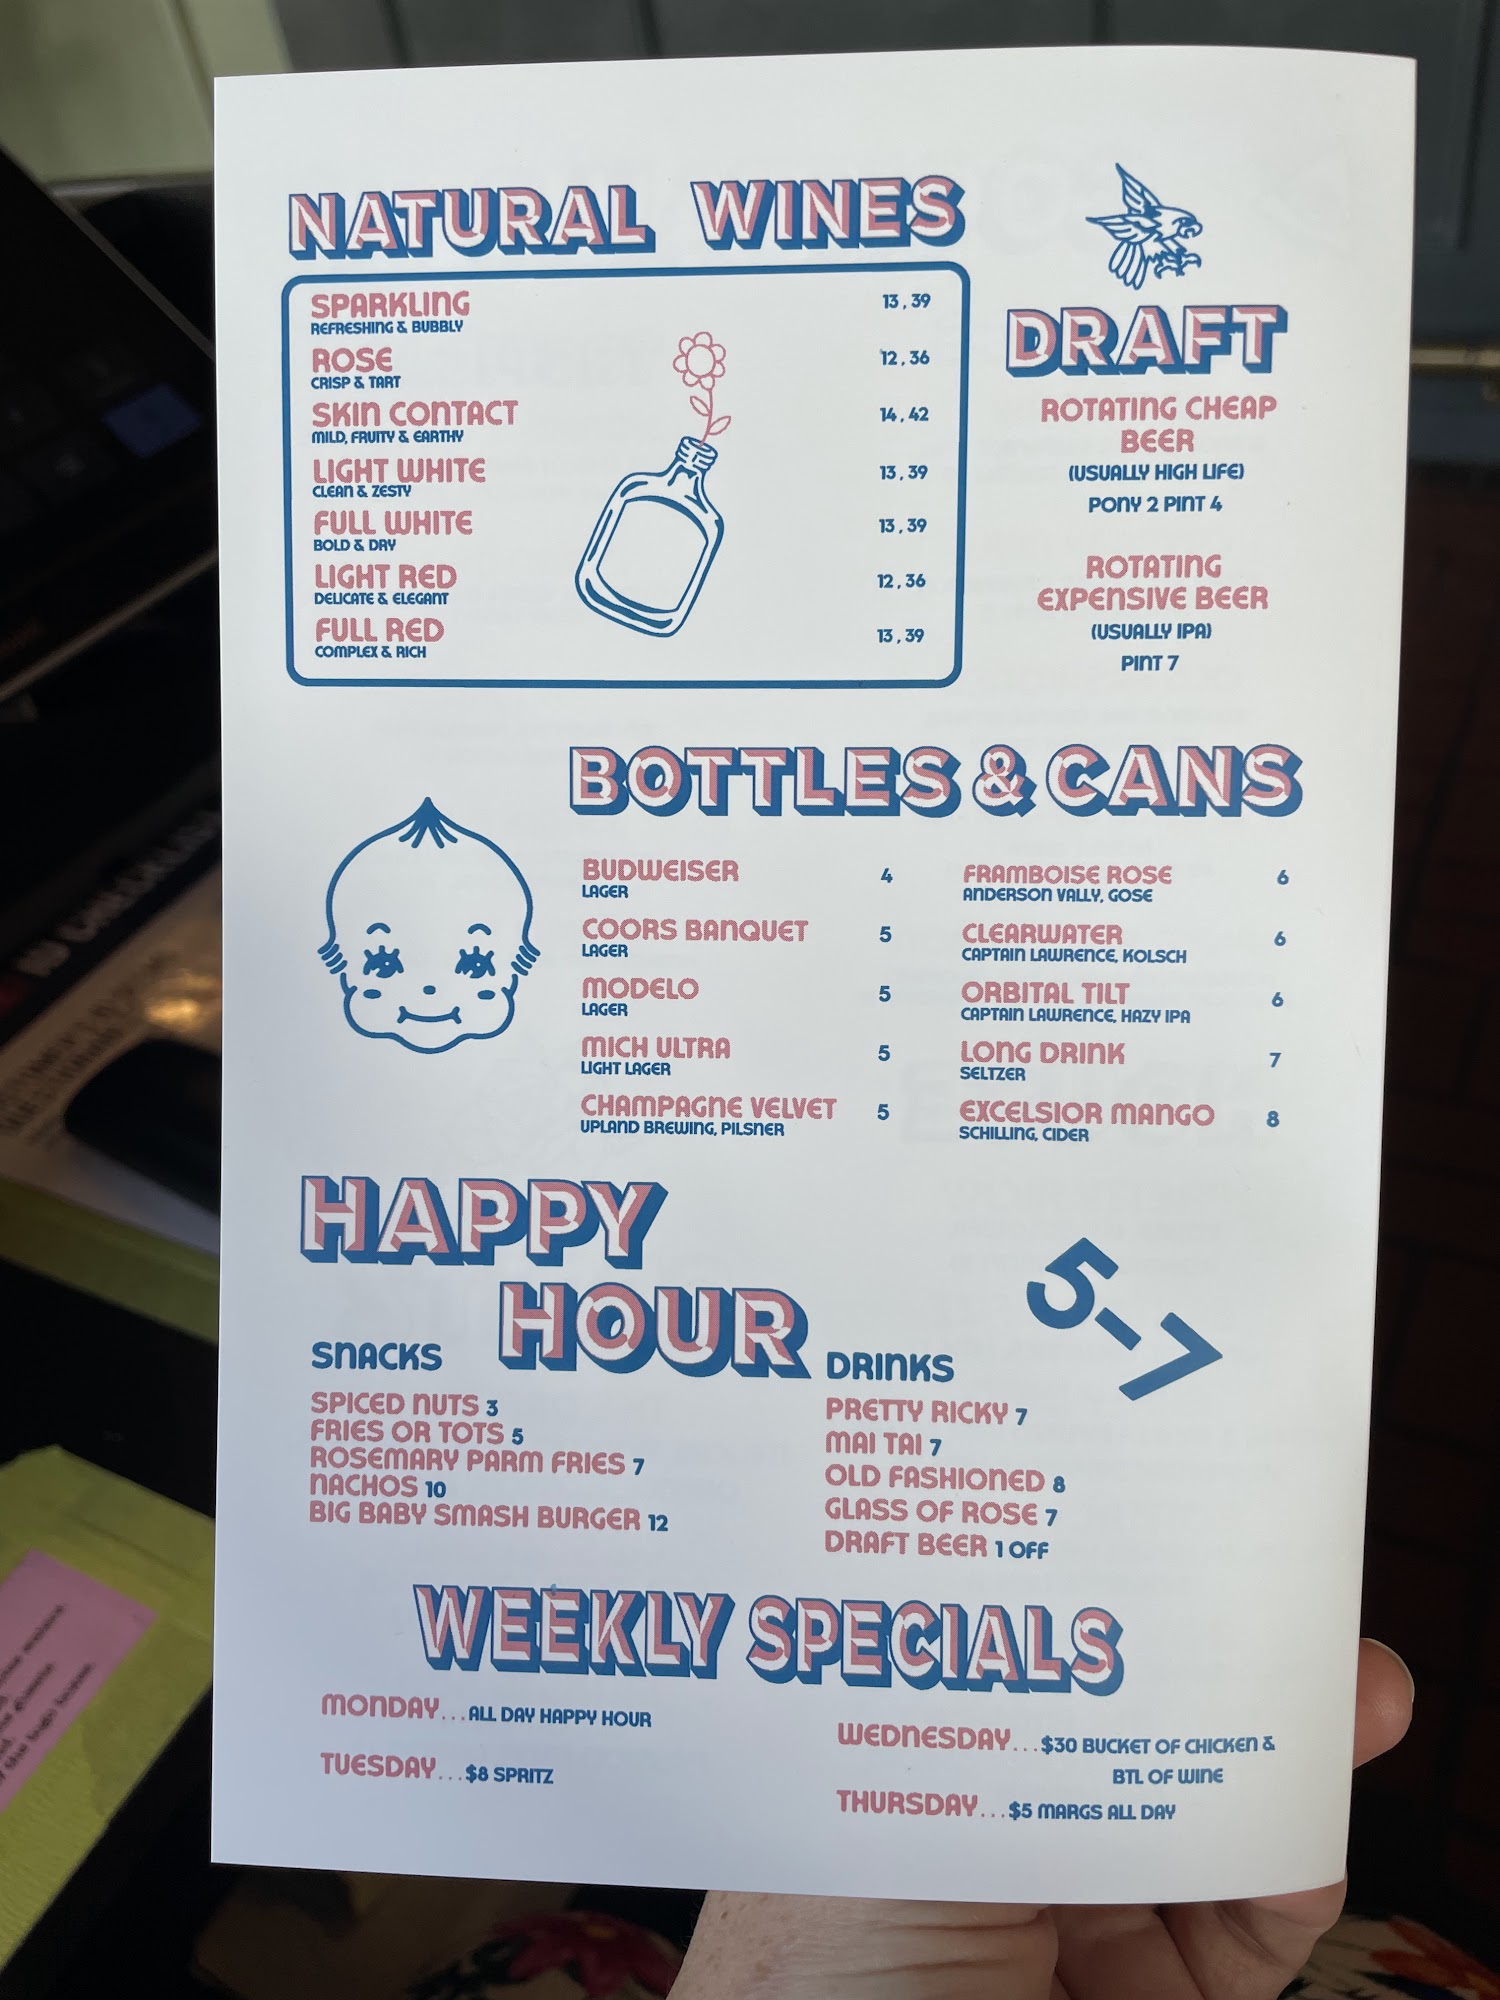 NATURAL WINES
SPARKLING 13, 39
REFRESHING & BUBBLY
ROSE 12, 36
CRISP & TART
SKIN CONTACT 14, 42
MILD, FRUITY & EARTHY
LIGHT WHITE 13, 39
CLEAN & ZESTY
FULL WHITE 13, 39
BOLD & DRY
LIGHT RED 12, 36
DELICATE & ELEGANT
FULL RED 13, 39
COMPLEX & RICH
DRAFT
ROTATING CHEAP
BEER
(USUALLY HIGH LIFE)
PONY 2 PINT 4
ROTATING
EXPENSIVE BEER
(USUALLY IPA)
PINT 7
BOTTLES & CANS
BUDWEISER 4
LAGER
COORS BANQUET 5
LAGER
MODELO 5
LAGER
MICH ULTRA 5
LIGHT LAGER
CHAMPAGNE VELVET 5
UPLAND BREWING, PILSNER
FRAMBOISE ROSE 6
ANDERSON VALLY, GOSE
CLEARWATER 6
CAPTAIN LAWRENCE, KOLSCH
ORBITAL TILT 6
CAPTAIN LAWRENCE, HAZY IPA
LONG DRINK 7
SELTZER
EXCELSIOR MANGO 8
SCHILLING, CIDER
HAPPY
HOUR
5-7
SNACKS
SPICED NUTS 3
FRIES OR TOTS 5
ROSEMARY PARM FRIES 7
NACHOS 10
BIG BABY SMASH BURGER 12
DRINKS
PRETTY RICKY 7
MAI TAI 7
OLD FASHIONED 8
GLASS OF ROSE 7
DRAFT BEER 1 OFF
WEEKLY SPECIALS
MONDAY...ALL DAY HAPPY HOUR
TUESDAY...$8 SPRITZ
WEDNESDAY...$30 BUCKET OF CHICKEN &
BTL OF WINE
THURSDAY...$5 MARGS ALL DAY